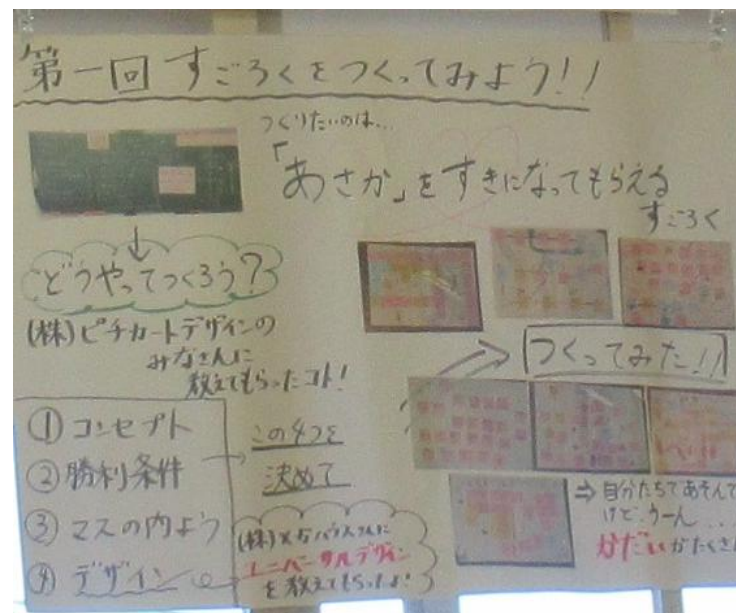 第一回 すごろくをつくってみよう!!
つくりたいのは...
「あさか」をすきになってもらえる
すごろく
どうやってつくろう?
(株)ピチカートデザインの
みなさんに
教えてもらったコト!
つくってみた!!
① コンセプト
② 勝利条件
③ マスの内よう
④ デザイン
この4つを
決めて
(株)
ユニバーサルデザイン
を教えてもらったよ!
⇒ 自分たちであそんで
けど、うーん...
かだいがたくさん